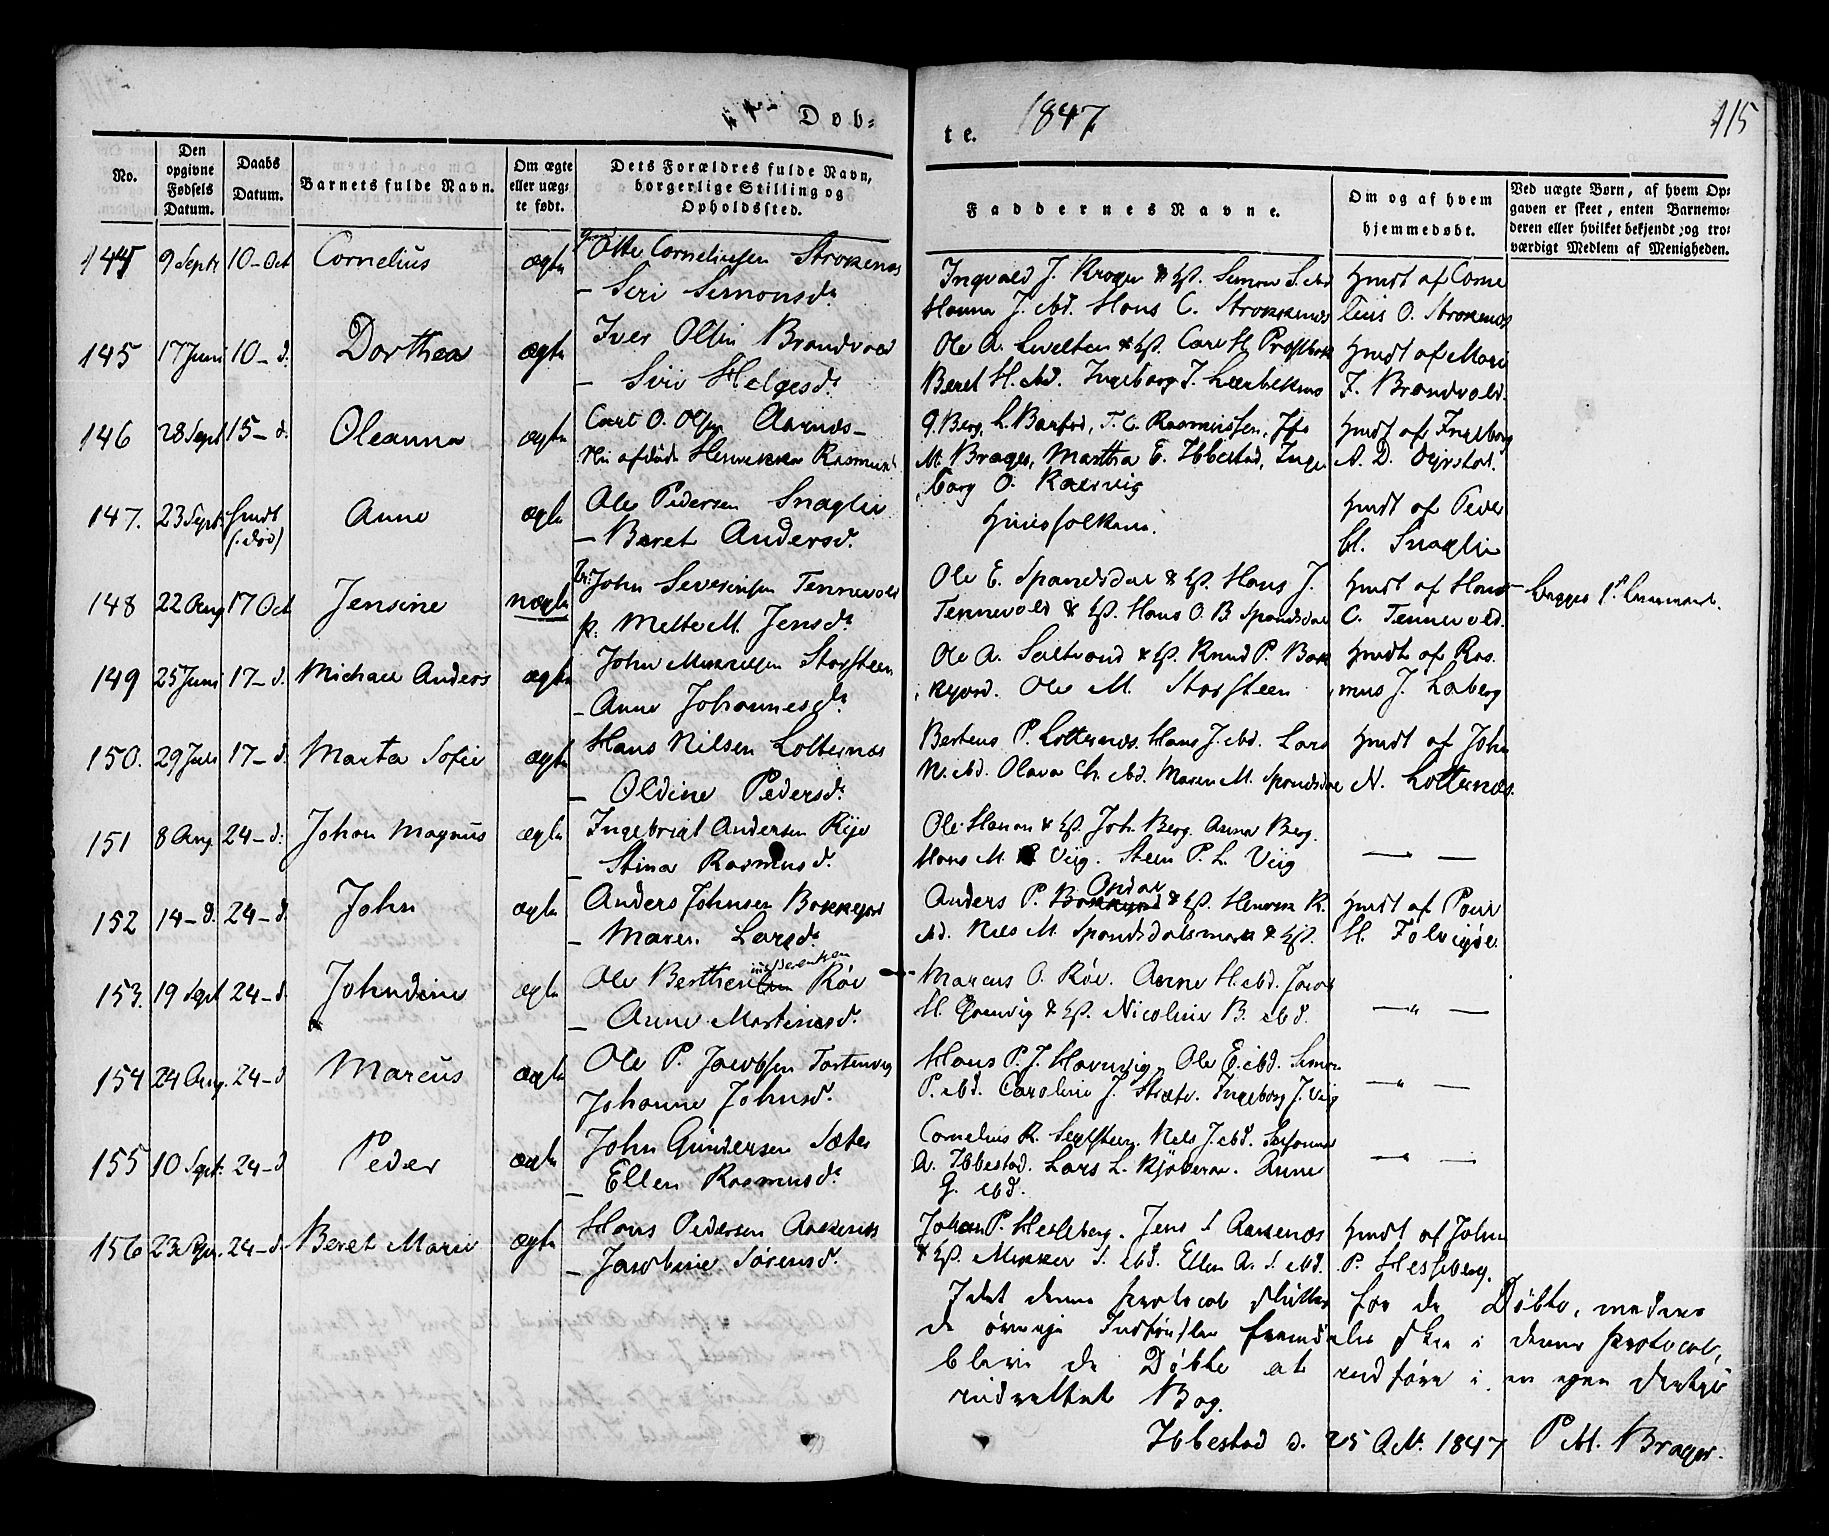 Døb-
te. 1847 115
No.
Den opgivne Fødsels Datum.
Daabs Datum.
Barnets fulde Navn.
Om ægte eller uægte født.
Dets Forældres fulde Navn, borgerlige Stilling og Opholdssted.
Faddernes Navne.
Om og af hvem hjemmedøbt.
Ved uægte Børn, af hvem Opgaven er skeet, enten Barnemoderen eller hvilket bekjendt og troværdigt Medlem af Menigheden.
144 9 Septr 10-Oct Cornelius ægte Otte Corneliussen Strokenæs
- Seri Simonsd.
Ingvald J. Kroger & Simon S. ebd
Hanna J. ebd. Hans C. Strokkenæs
Hmdt af Corne
lius O. Strokenæs
145 17 Juni 10-d. Dorthea ægte Iver Olsen Brandvold
- Siri Helgesd.
Ole A.
Beret H. ebd. Ingeborg J.
Hmdt af Mari
J. Brandvold.
146 28 Sept 15-d. Oleanna ægte Carl O. Olsen Aarnæs-
afdøde Henrikka Rasmusd.
G. Berg, L. Barfod, T. C. Rasmussen,
M. Brager, Martha E. Ibbestad, Inge
borg O. Kaersvig
Hmdt af Ingeborg
A. D.
147. 23 Sept. hmdt (: død) Anne ægte Ole Pedersen Snaglie
- Beret Andersd.
Huusfolkene.
Hmdt af Peder
Snaglie
148 22 Aug 17 Oct Jensine uægte John Severinsen Tennevold
p. Mette M. Jensd.
Ole E. Spandsdal & Hans J.
Tennevold & Hans O. B. Spandsdal
Hmdt af Hans
C. Tennevold.
Begges 1ste
149 25 Juni 17-d. Michael Anders ægte John Mikkelsen Storsteen
- Anne Johannesd.
Ole A. Saltvand & Knud P. Bok
kejord. Ole M. Storsteen
Hmdt af Ras
mus J. Laberg
150. 29 Juli 17-d. Marta Sofie ægte Hans Nilsen Lottenæs
- Oldine Pedersd.
P. Lottenæs. Hans J. ebd. Lars
N. ebd. Olava Ch. ebd. Maren M. Spandsdal
Hmdt af John
N. Lottenæs.
151 8 Aug 24-d. Johan Magnus ægte Ingebrigt Andersen Rije
- Stina Rasmusd.
Ole Hanan & Joh. Berg. Anna Berg.
Hans M. Viig. Steen P. L. Viig
— —
152 14-d. 24-d. John ægte Anders Johnsen Bokkejord
- Maren Larsd.
Anders P. & Henrik K.
ebd. Nils M. Spandsdalsmark &
Hmdt af Poul
H.
153. 19 Sept 24-d. Johndine ægte Ole Berthe Røe
- Anne Martinusd.
Marcus O. Røe. Anne H. ebd. Jacob
H. & Nicoline B. ebd.
— " —
154 24 Aug. 24-d Marcus ægte Ole P. Jacobsen
Johanne Johnsd.
Hans P. J. Havnvig. Ole E. ebd. Simon
P. ebd. Caroline J. Stræte. Ingeborg J. Viig
— " —
155 10 Sept. 24-d Peder ægte John Gundersen Sæter
- Ellen Rasmusd.
Cornelius R. Nils J. ebd.
A. Ibbestad. Lars L. Anne
G. ebd.
— " —
156 23 24-d. Beret Marie ægte Hans Pedersen Aakenæs
- Jacobine Sørensd.
Johan P. Hesleberg. Jens S. Aakenæs
& Mikkel S. ebd. Ellen A. S. ebd.
Hmdt af John
P. Hesseberg.
Idet denne Protocol sluttes for de Døbte, medens
de øvrige Indførsler fremdeles skee i denne Protocol,
blive de Døbte at indføre i en egen dertil
indrettet Bog.
Ibbestad d. 25 Oct. 1847 P M. Brager.